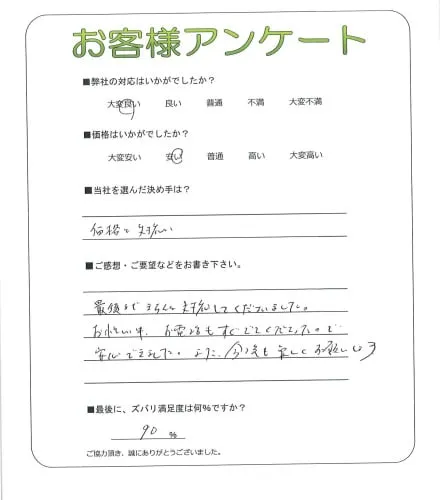 お客様アンケート
■弊社の対応はいかがでしたか?
大変良い 良い 普通 不満 大変不満
■価格はいかがでしたか?
大変安い 安い 普通 高い 大変高い
■当社を選んだ決め手は?
価格と対応
■ご感想・ご要望などをお書き下さい。
最後まできちんと対応してくださいました。
お忙しい中、お電話もすぐでてくださったので
安心できました。また、今後も宜しくお願いします
■最後に、ズバリ満足度は何%ですか?
90 %
ご協力頂き、誠にありがとうございました。